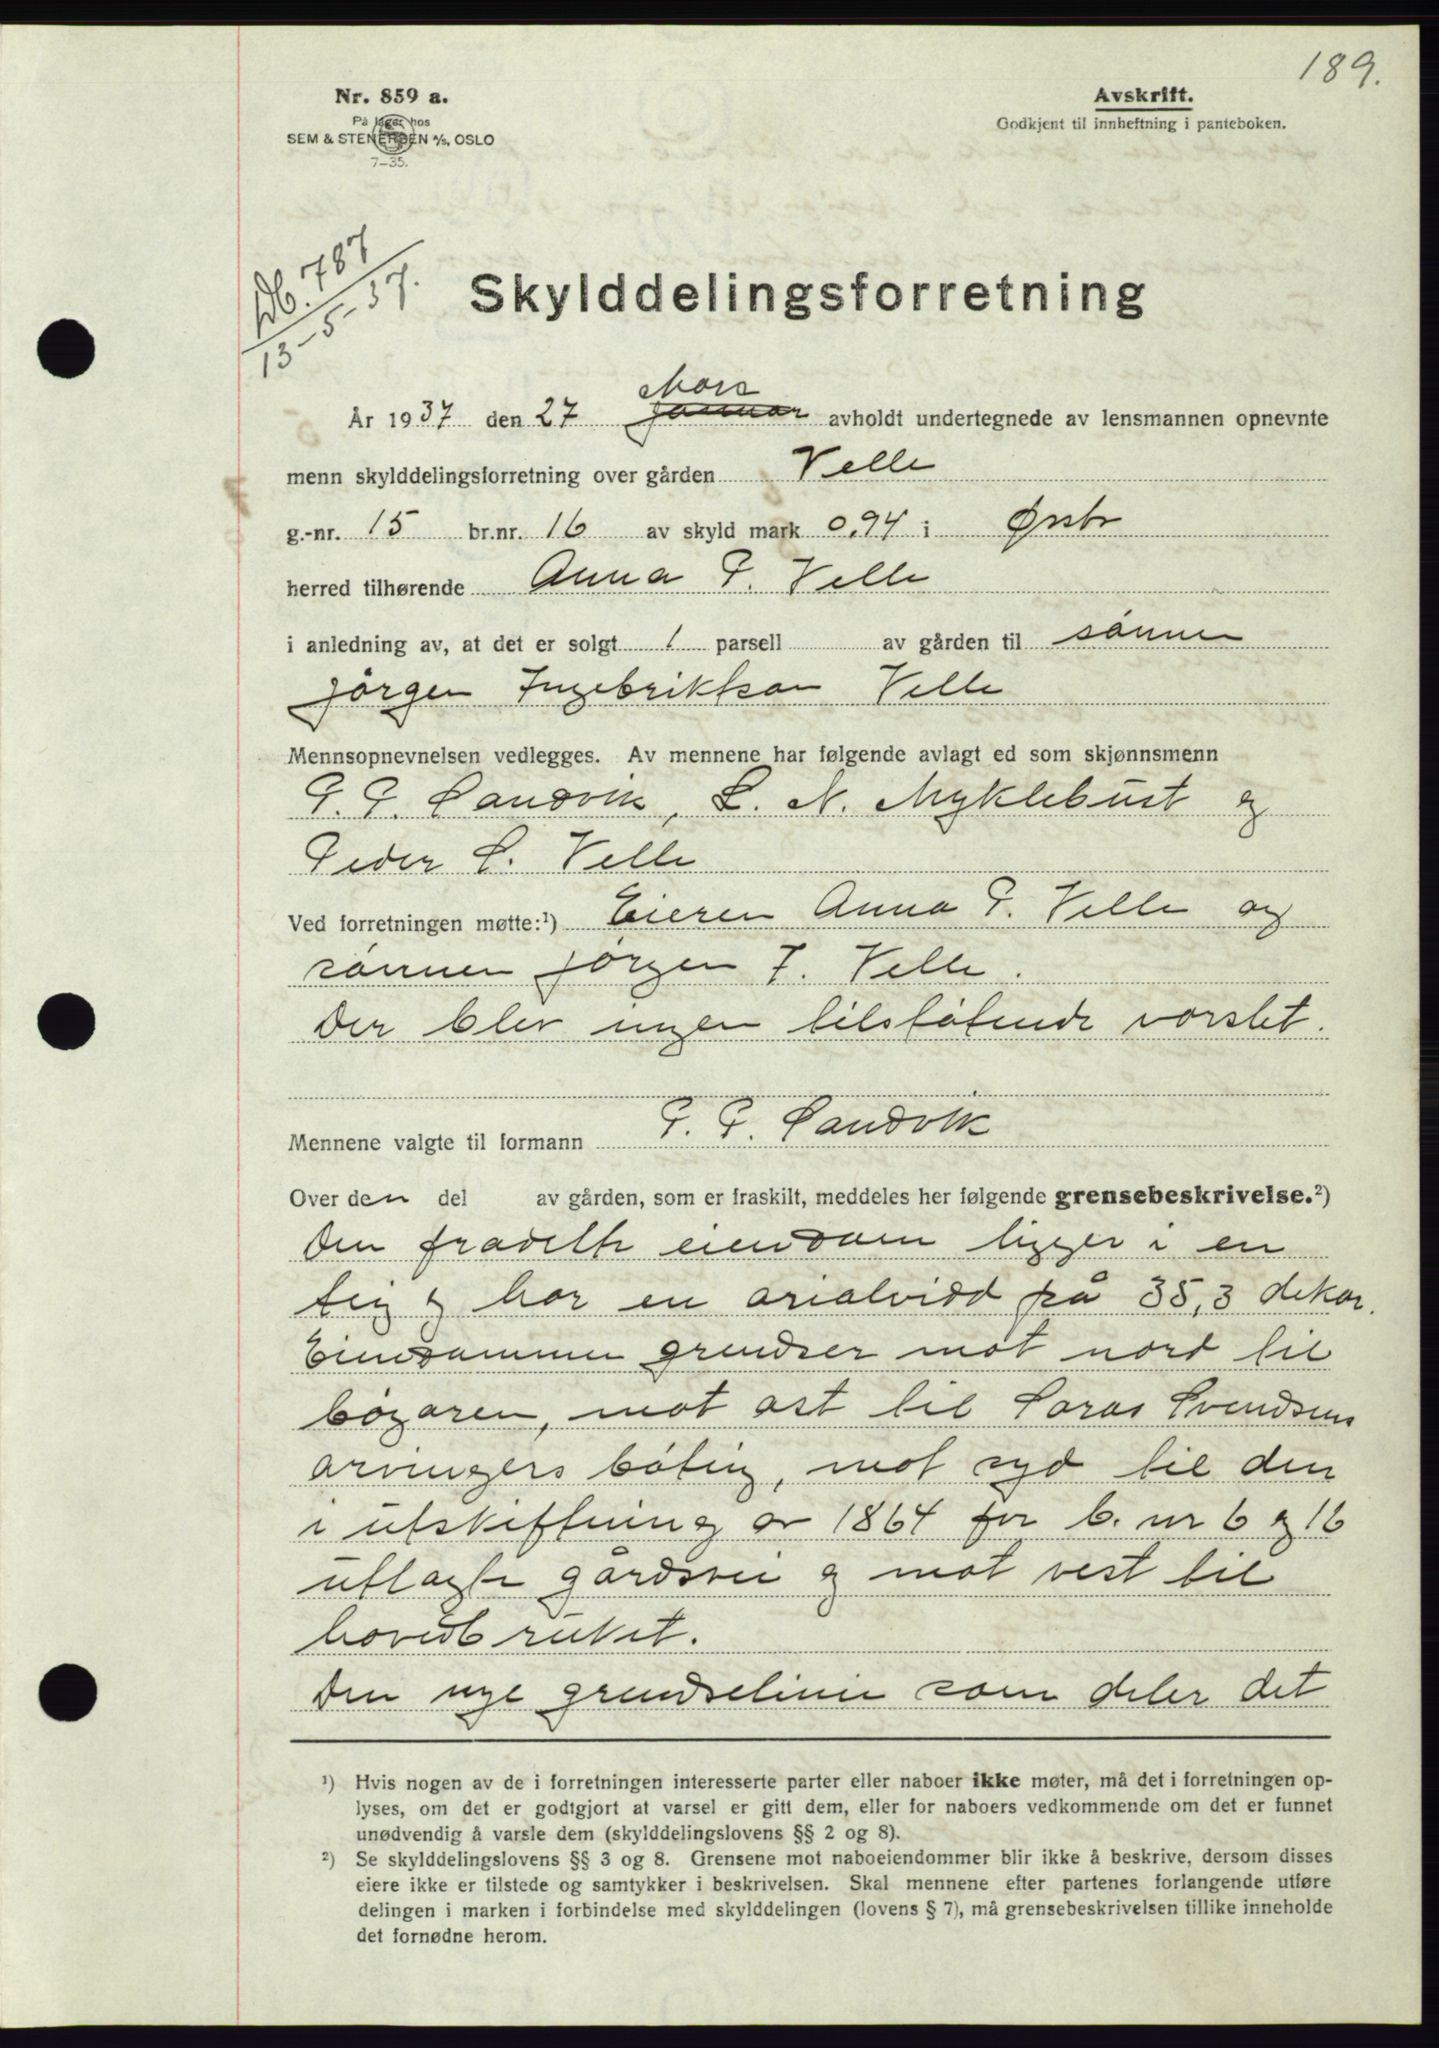 189.
Nr. 859 a.
På lager hos
SEM & STENERSEN A/S, OSLO
7-35.
Avskrift.
Godkjent til innheftning i panteboken.
Db. 787
13-5-37.
Skylddelingsforretning
Mars
År 1937 den 27 januar avholdt undertegnede av lensmannen opnevnte
menn skylddelingsforretning over gården Velle
g.-nr. 15 br.nr. 16 av skyld mark 0,94 i Ørsta
herred tilhørende Anna P. Velle
i anledning av, at det er solgt 1 parsell av gården til sønnen
Jørgen Ingebriktson Velle
Mennsopnevnelsen vedlegges. Av mennene har følgende avlagt ed som skjønnsmenn
P. P. Sandvik, L. N. Myklebust og
Peder S. Velle
Ved forretningen møtte:¹) Eieren Anna P. Velle og
sønnen Jørgen I. Velle.
Der blev ingen tilstøtende varslet.
Mennene valgte til formann P. P. Sandvik
Over den del av gården, som er fraskilt, meddeles her følgende grensebeskrivelse.²)
Den fradelte eiendom ligger i en
teig og har en arialvidd på 35,3 dekar.
Eiendommen grendser mot nord til
bøgaren, mot øst til Saras Svendsens
arvingers bøteig, mot syd til den
i utskiftning av 1864 for b. nr 6 og 16
utlagte gårdsvei og mot vest til
hovedbruket.
Den nye grendselinie som deler det
¹) Hvis nogen av de i forretningen interesserte parter eller naboer ikke møter, må det i forretningen op-
lyses, om det er godtgjort at varsel er gitt dem, eller for naboers vedkommende om det er funnet
unødvendig å varsle dem (skylddelingslovens §§ 2 og 8).
²) Se skylddelingslovens §§ 3 og 8. Grensene mot naboeiendommer blir ikke å beskrive, dersom disses
eiere ikke er tilstede og samtykker i beskrivelsen. Skal mennene efter partenes forlangende utføre
delingen i marken i forbindelse med skylddelingen (lovens § 7), må grensebeskrivelsen tillike inneholde
det fornødne herom.